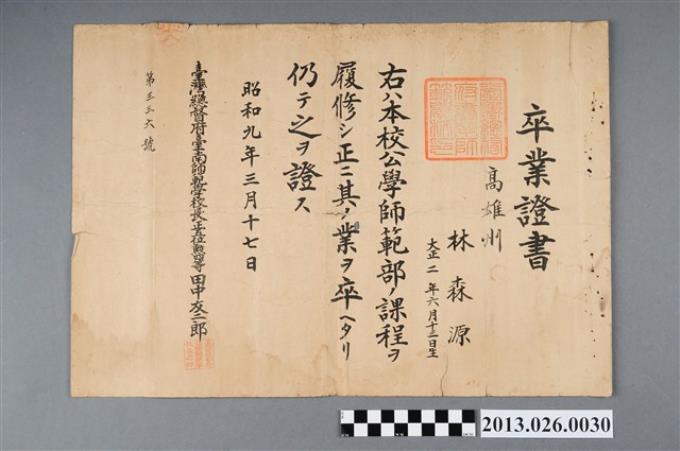 卒業證書
高雄州
林森源
大正二年六月十三日生
右ハ本校公學師範部ノ課程ヲ
履修シ正ニ其ノ業ヲ卒ヘタリ
仍テ之ヲ證ス
昭和九年三月十七日
臺灣總督府臺南師範學校長正五位勲四等田中友二郎
2013.026.0030